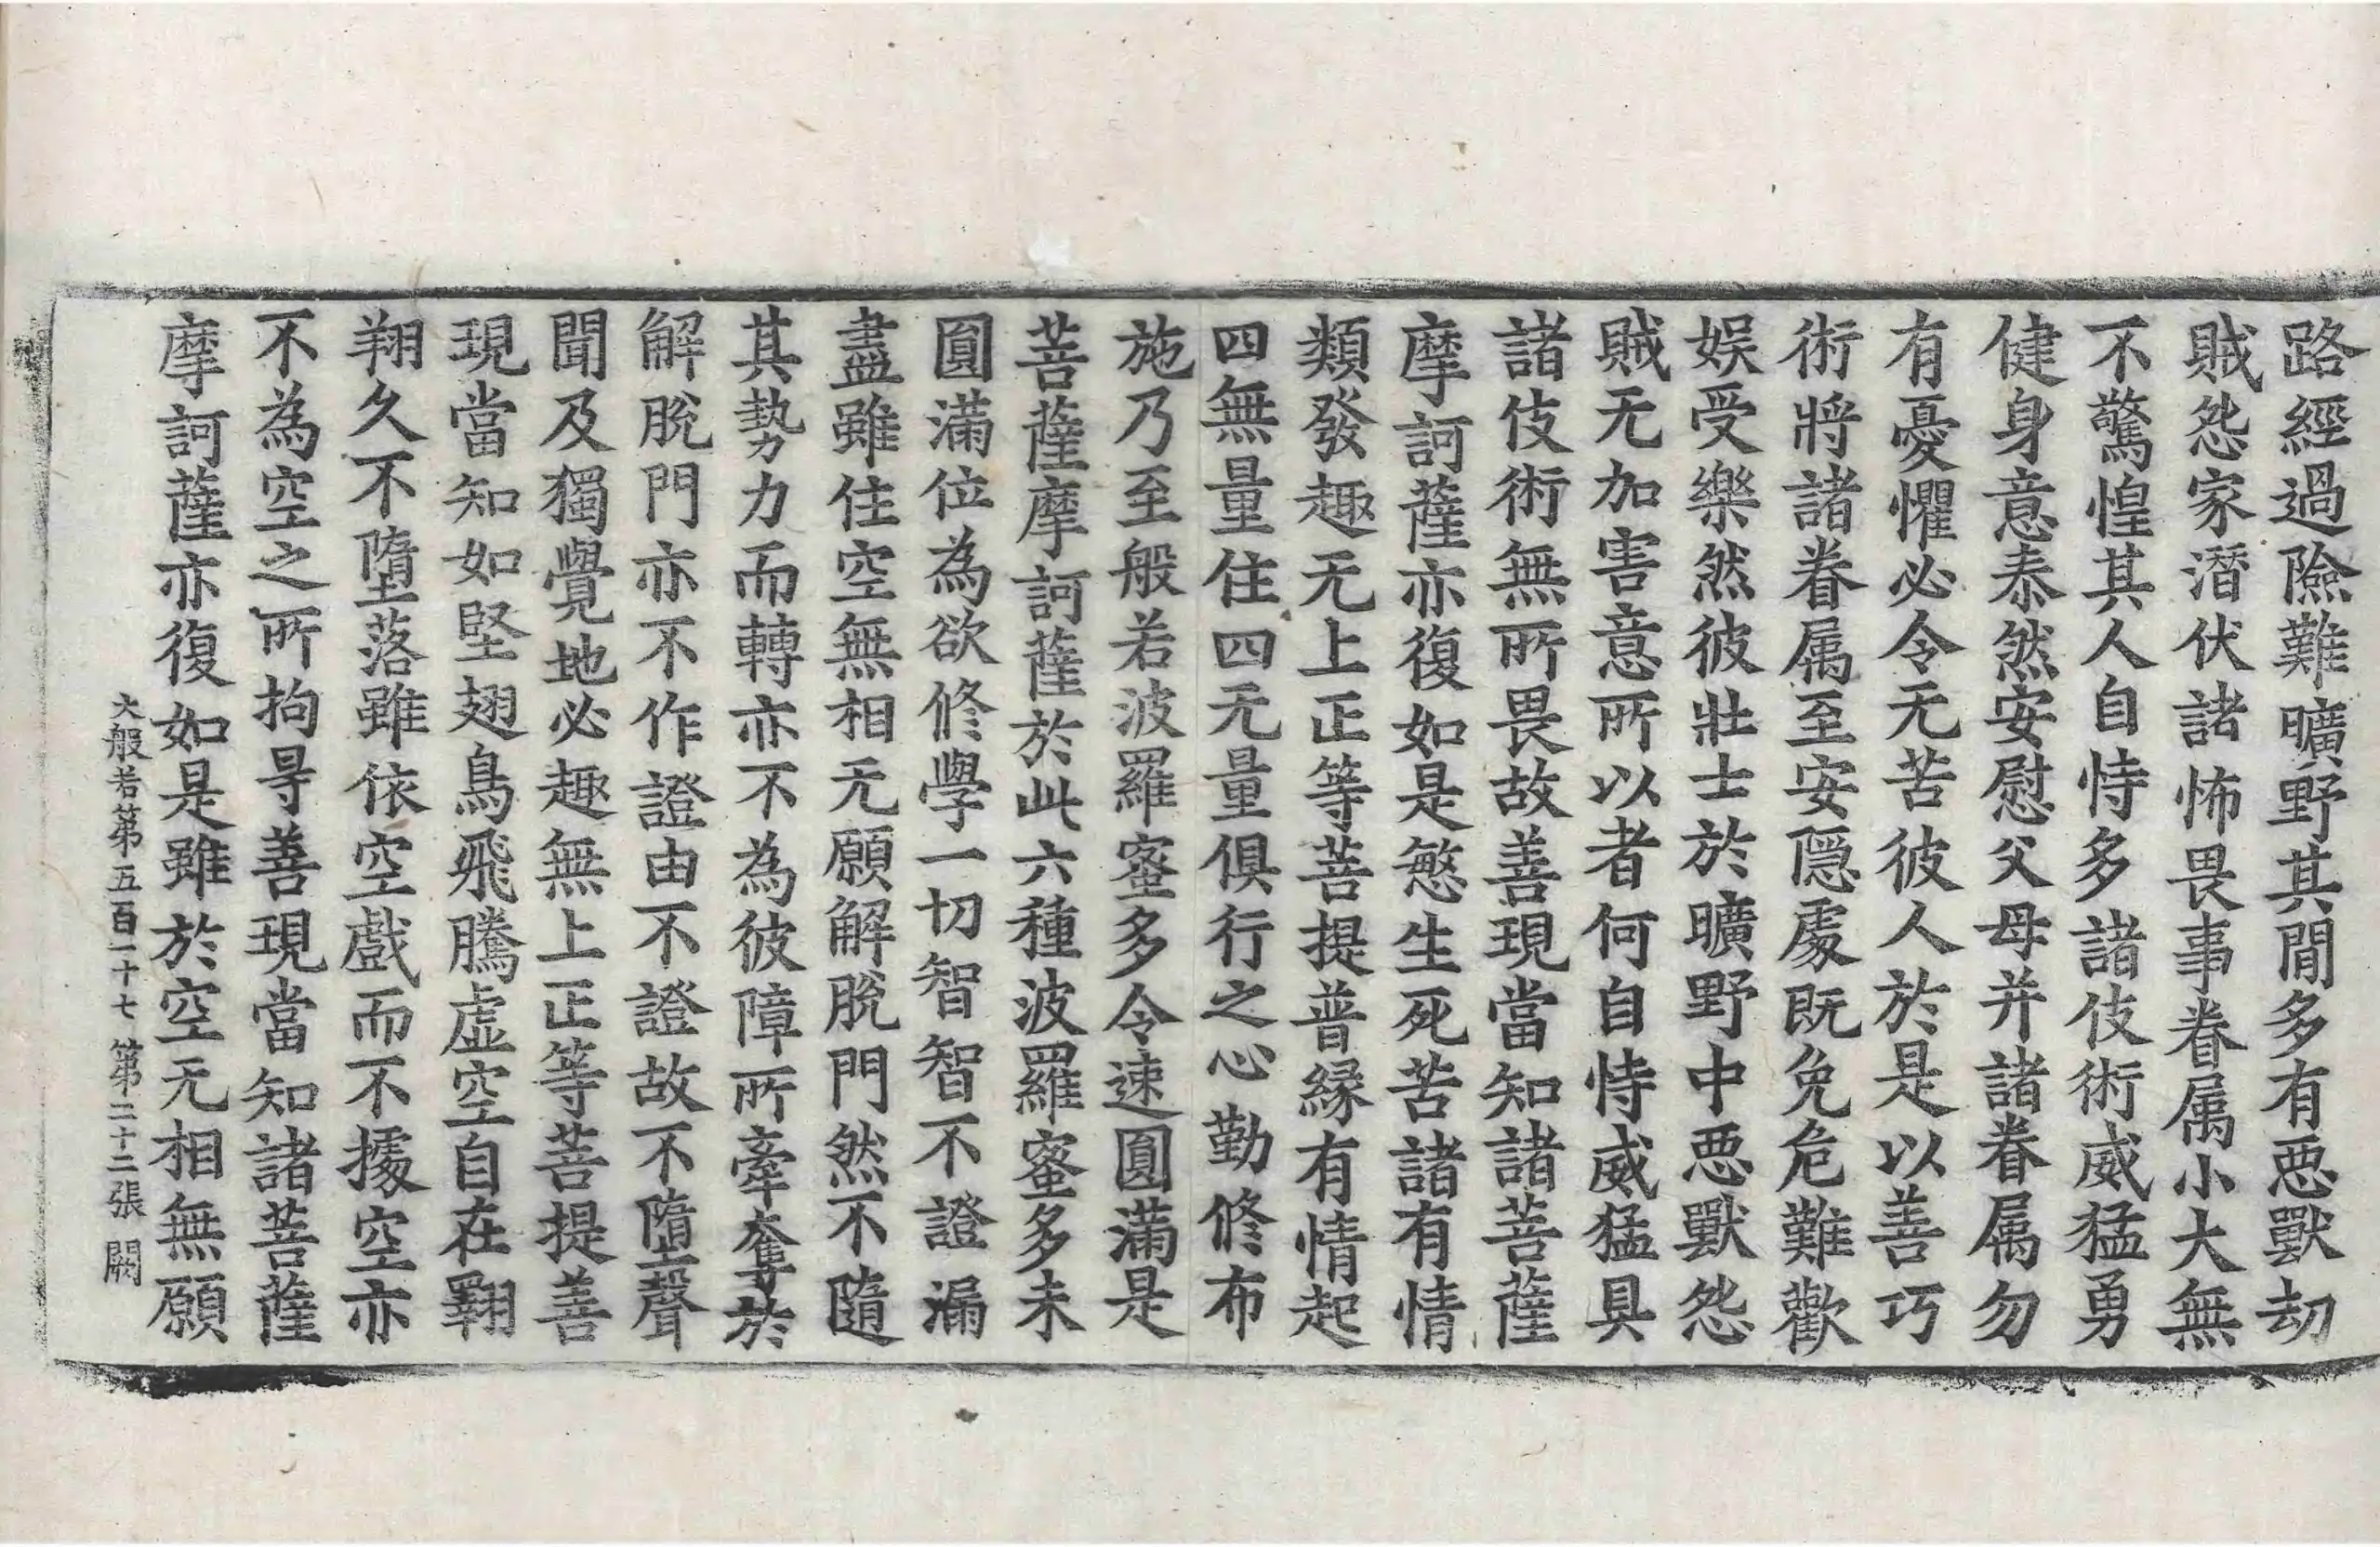 路經過險難曠野其間多有惡獸劫
賊怨家潛伏諸怖畏事眷属小大無
不驚惶其人自恃多諸伎術威猛勇
健身意泰然安慰父母并諸眷属勿
有憂懼必令无苦彼人於是以善巧
術將諸眷属至安隱處既免危難歡
娛受樂然彼壯士於曠野中惡獸怨
賊无加害意所以者何自恃威猛具
諸伎術無所畏故善現當知諸菩薩
摩訶薩亦復如是慜生死苦諸有情
類發趣无上正等菩提普緣有情起
四無量住四无量俱行之心勤修布
施乃至般若波羅蜜多令速圓滿是
菩薩摩訶薩於此六種波羅蜜多未
圓滿位為欲修學一切智智不證漏
盡雖住空無相无願解脫門然不隨
其勢力而轉亦不為彼障所牽奪於
解脫門亦不作證由不證故不墮聲
聞及獨覺地必趣無上正等菩提善
現當知如堅翅鳥飛騰虛空自在翱
翔久不墮落雖依空戲而不據空亦
不為空之所拘㝵善現當知諸菩薩
摩訶薩亦復如是雖於空无相無願
大般若第五百一十七 第二十二張 闕